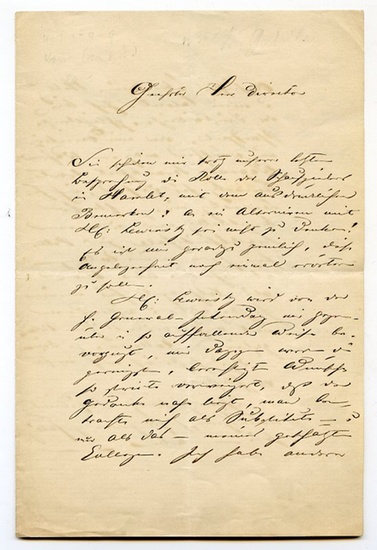 Geehrter Herr Director
Sie schicken mir trotz unserer letzten
Besprechung die Rolle des Schauspielers
in Hamlet, mit dem ausdrücklichen
Bemerken: an ein Alterniren mit
H: Lewinsky sei nicht zu denken!
Es ist mir geradezu peinlich, diese
Angelegenheit noch einmal erörtern
zu sollen.
H: Lewinsky wird von der
General-Intendanz mir gegen-
über in so auffallender Weise be-
vorzugt, mir dagegen werden die
geringsten, berechtigten Wünsche
so verweigert, daß der
Gedanke nahe liegt, man be-
trachte mich als Substituten
als das meines geschätzten
Collegen. Ich habe anderer